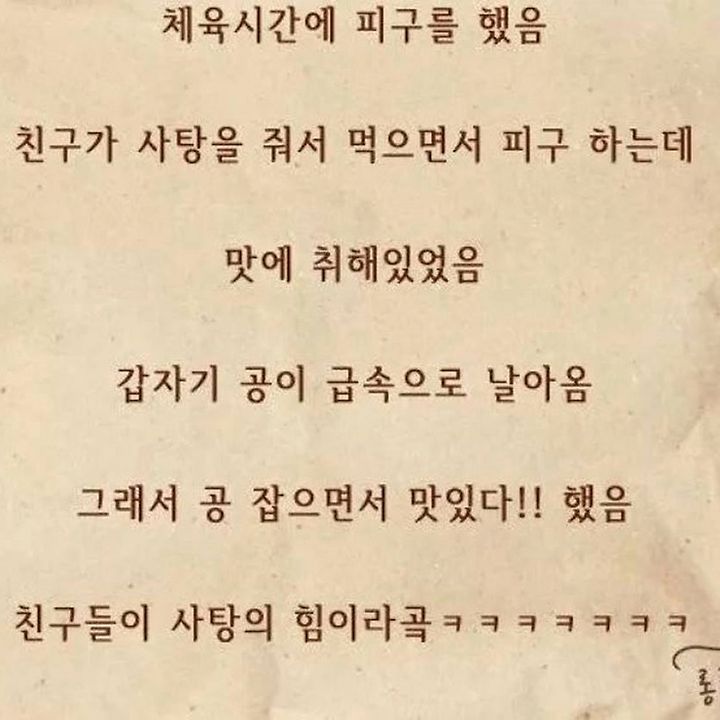 체육시간에 피구를 했음
친구가 사탕을 줘서 먹으면서 피구 하는데
맛에 취해있었음
갑자기 공이 급속으로 날아옴
그래서 공 잡으면서 맛있다!! 했음
친구들이 사탕의 힘이라곸ㅋㅋㅋㅋㅋㅋㅋ